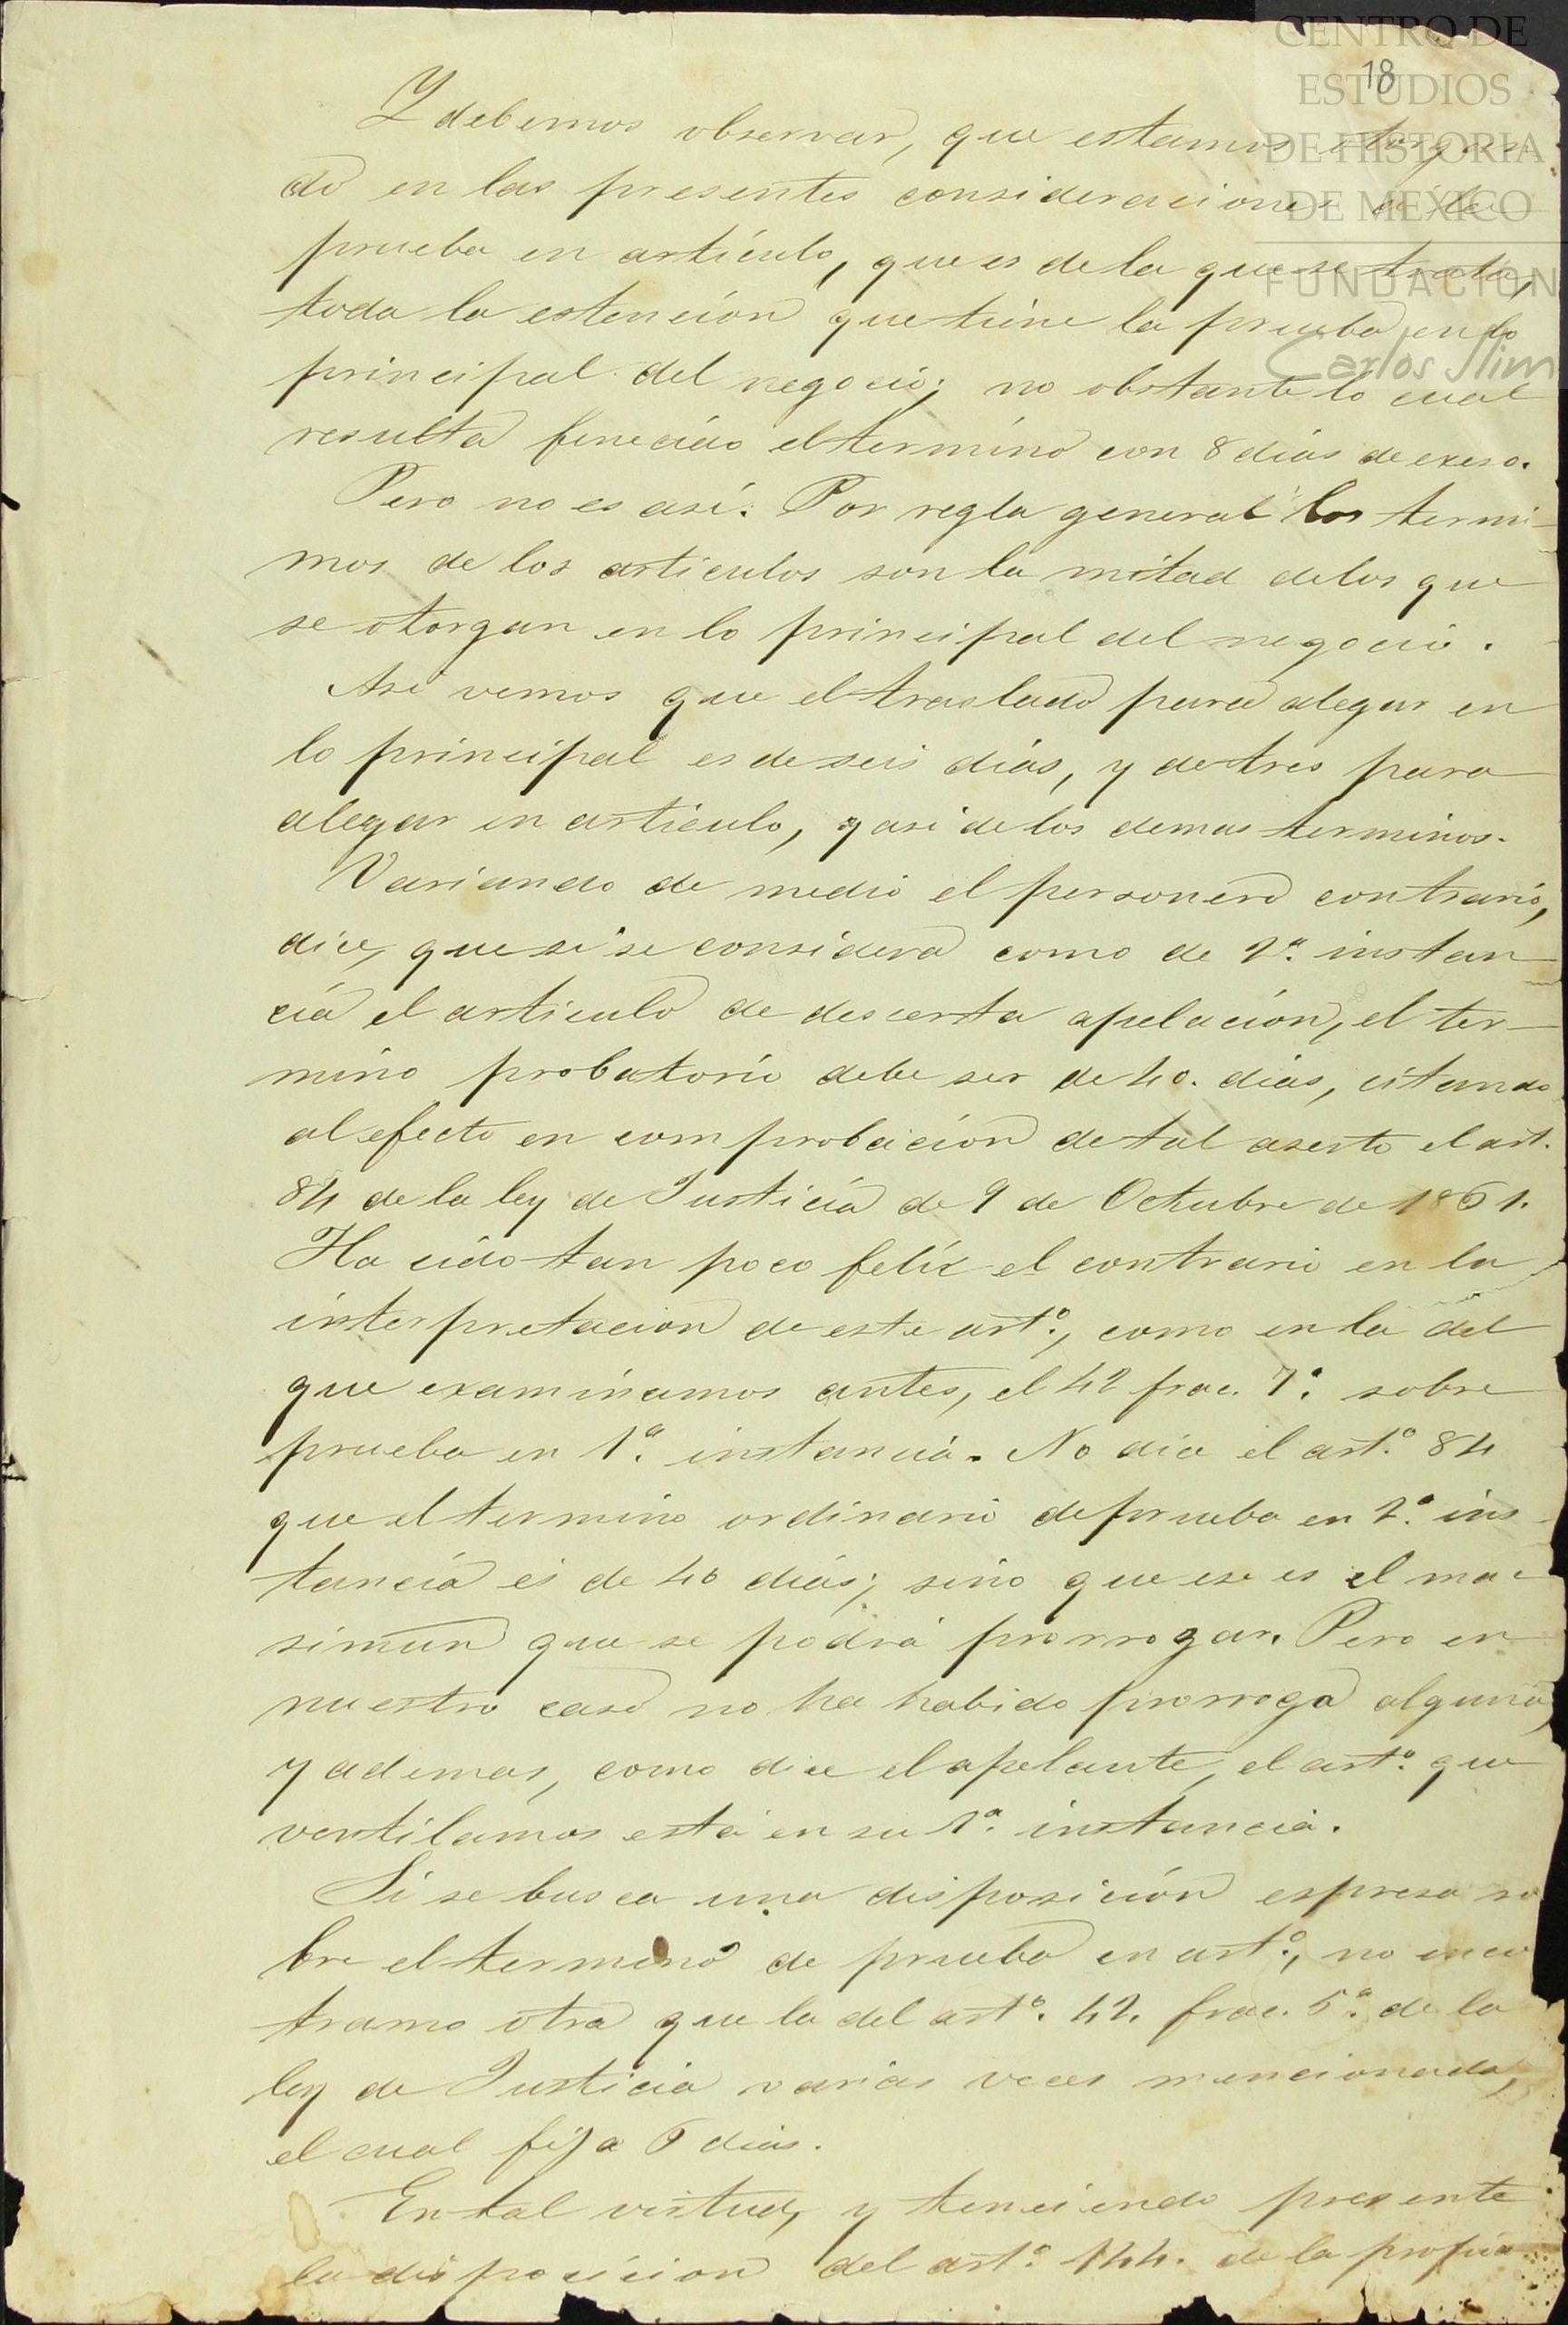 CENTRO DE
ESTUDIOS
DE HISTORIA
DE MÉXICO
FUNDACIÓN
Carlos Slim
18
Y debemos observar, que estamos otorgan
do en las presentes consideraciones á la
prueba en artículo, que es de la que se trata,
toda la estención que tiene la prueba en lo
principal del negocio; no obstante lo cual
resulta fenecido el termino con 8 dias de exeso.
Pero no es así. Por regla general los termi-
mos de los articulos son la mitad de los que
se otorgan en lo principal del negocio.
Asi vemos que el traslado para alegar en
lo principal es de seis dias, y de tres para
alegar en articulo, y asi de los demas terminos.
Variando de medio el personero contrario,
dice, que si se considera como de 2ª. instan
cia el articulo de desierta apelación, el ter-
mino probatorio debe ser de 40. dias, citando
al efecto en comprobación de tal aserto el art.
84 de la ley de Justicia de 9 de Octubre de 1861.
Ha cido tan poco felíz el contrario en la
interpretacion de este artº., como en la del
que examinamos antes, el 42 frac. 7ª. sobre
prueba en 1ª. instancia. No dice el artº. 84
que el termino ordinario de prueba en 2ª. ins
tancia es de 40 dias; sino que ese es el mac
simun que se podrá prorrogar. Pero en
nuestro caso no ha habido prorroga alguna,
y ademas, como dice el apelante, el artº. que
ventilamos está en su 1ª. instancia.
Si se busca una disposición espresa so
bre el termino de prueba en artº., no encu
tramo otra que la del artº. 42. frac. 5ª. de la
ley de Justicia varias veces mencionada,
el cual fija 6 dias.
En tal virtud, y teneiendo presente
la disposicion del artº. 144. de la propia